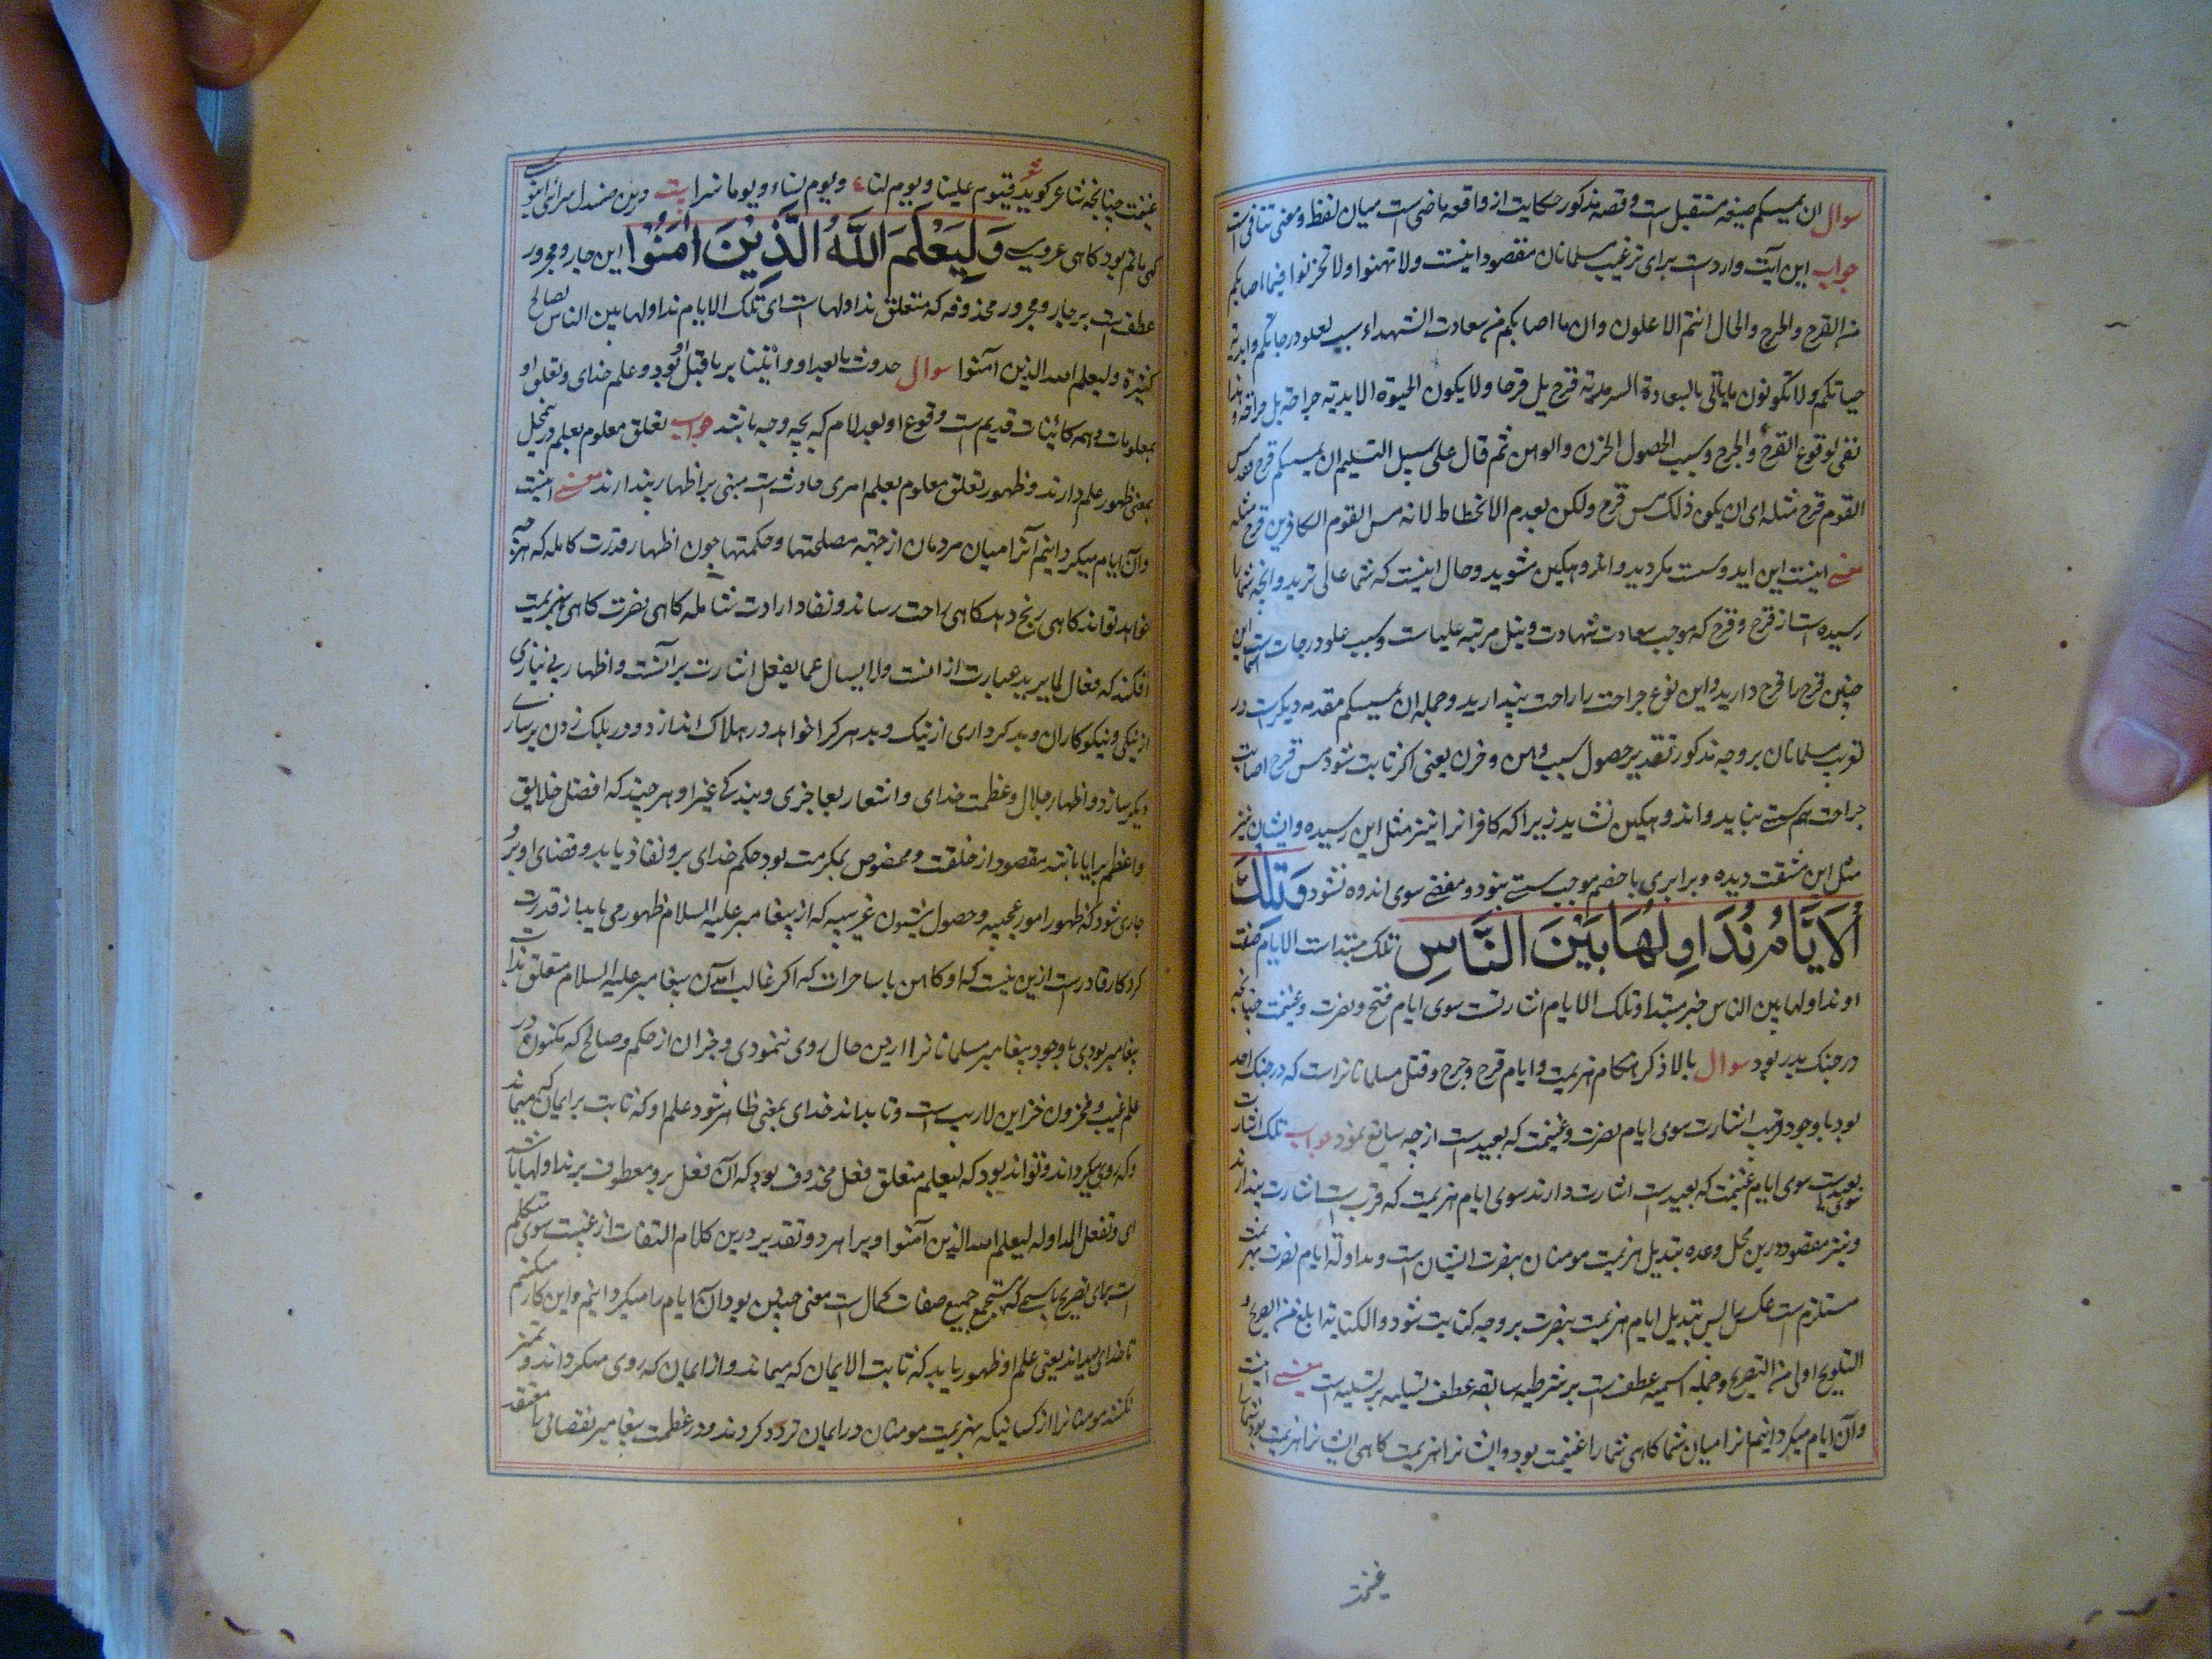 سوال ان یمسسکم صیغه مستقبل است و قصه مذکور حکایت از واقعه ماضی است میان لفظ و معنی تنافی است
جواب این آیت وارد است برای ترغیب مسلمانان مقصود اینست ولا تهنوا ولا تحزنوا فیما اصابکم
من القرح والجرح والحال انتم الاعلون وان ما اصابکم من سعادت الشهداء سبب لعلو درجاتکم وابدیة
حیاتکم ولا تکونون یاتی بالسعادة السرمدیة قرح بل فرحا ولا یکون الحیوة الابدیة جراحة بل
نفی لوقوع القرح والجرح وسبب لحصول الحزن والوهن ثم قال علی سبیل التسلیم ان یمسسکم قرح فقد مس
القوم قرح مثله ای ان یکن ذلک مس قرح ولکن بعدم الانحطاط لانه مس القوم الکافرین قرح مثله
معنی اینست این اید و سست مکردید و اندوهکین مشوید و حال اینست که شما عالی ترید و انچه شما را
رسیده است از قرح و قرح که موجب سعادت شهادت و نیل مرتبه علیات و سبب علو درجات است این
چنین قرح را فرح دارید و این نوع جراحت را راحت پندارید و جمله ان یمسسکم مقدمه دیکرست در
مسلمانان بر وجه مذکور بتقدیر حصول سبب وهن و حزن یعنی اکر ثابت شود مس قرح اصابت
جراحت هم سستی نباید و اندوهکین نشاید زیرا که کافرانرا نیز مثل این رسیده و ایشان نیز
مثل این مشقت دیده و برابری با خصم موجب سستی نبود و مفضی سوی اندوه نشود وَتِلْكَ
الْاَيَّامُ نُدَاوِلُهَا بَيْنَ النَّاسِ تلک مبتداست الایام صفت
او نداولها بین الناس خبر مبتدا و تلک الایام اشارتست سوی ایام فتح و نصرت و غنیمت چنانچه
در جنک بدر بود سوال بالا ذکر هنکام هزیمت و ایام قرح و جرح و قتل مسلمانانراست که در جنک احد
بود با وجود قرب اشارت سوی ایام نصرت و غنیمت که بعیدست از چه سایغ بود جواب تلک اشارت
بعیدست سوی ایام غنیمت که بعیدست اشارت دارند سوی ایام هزیمت که قریب است اشارت پندارند
و نیز مقصود درین محل وعده تبدیل هزیمت مومنان بنصرت ایشان است و مداولة ایام نصرت بهزیمت
مستلزم است پس تبدیل ایام هزیمت بنصرت بر وجه کنایت شود والکنایة ابلغ من الصریح و
التلویح اولی من التصریح و جمله اسمیه عطف است بر شرطیه سابقه عطف تسلیه بر تسلیه است معنی اینست
و آن ایام میکردانیم انرا میان شما کاهی شما را غنیمت بود و ایشانرا هزیمت کاهی ایشانرا هزیمت بود شما را
غنیمت
غنیمت چنانچه شاعر کوید شعر فیوم علینا ویوم لنا ویوم نساء ویوما نسر بیت درین
کهی ماتم بود کاهی عروسی وَلِيَعْلَمَ اللّٰهُ الَّذِيْنَ اٰمَنُوْا این جار و مجرور
عطف است بر جار و مجرور محذوفه که متعلق نداولها است ای تلک الایام نداولها بین الناس لمصالح
کثیرة ولیعلم الله الذین آمنوا سوال حدوث ما بعد او و ابتنا بر ما قبل او بود و علم خدای و تعلق او
بمعلومات و همه کائنات قدیم است وقوع او بعد لام کی بچه وجه باشد جواب تعلق معلوم بعلم درین محل
بمعنی ظهور علم دارند و ظهور تعلق معلوم بعلم امری حادث است مبنی بر اظهار پندارند معنی اینست
و آن ایام میکردانیم آنرا میان مردمان از جهة مصلحتها و حکمتها چون اظهار قدرت کامله که هرچه
خواهد تواند کاهی رنج دهد کاهی راحت رساند و نفاذ ارادت شامله کاهی نصرت کاهی هزیمت
افکند که فعال لما یرید عبارت از انست ولا یسال عما یفعل اشارت بر آنست و اظهار بی نیازی
از نیکی و نیکوکاران و بدکرداری از نیک و بد هر کرا خواهد در هلاک اندازد و در یک زدن
دیکر سازد و اظهار جلال و عظمت خدای و اشعار بعاجزی و بندکی غیر او هر چند که افضل خلایق
و اعظم برایا باشد مقصود از خلقت و مخصوص بمکرمت بود حکم خدای برو نفاذ یابد و قضای او برو
جاری شود که ظهور امور عجیبه و حصول شیون غریبه که از پیغامبر علیه السلام ظهور می یابد از قدرت
کردکار قادرست ازین نیست که او کاهن یا ساحرات که اکر غالب امدن پیغامبر علیه السلام متعلق بذات
پیغامبر بودی با وجود پیغامبر مسلمانانرا درین حال روی ننمودی و جز ان از حکم و مصالح که مکنون در
علم غیب و مخزون خزاین لاریب است و تا بداند خدای بمعنی ظاهر شود علم او که ثابت بر ایمان که میماند
و که روی میکرداند و تواند بود که لیعلم متعلق فعل محذوف بود که آن فعل برو معطوف بر نداولها باشد
ای ونفعل المداوله لیعلم الله الذین آمنوا و بر هر دو تقدیر درین کلام التفات از غیبت سوی متکلم
است برای تصریح باسمی که مستجمع جمیع صفات کمال است معنی چنین بود آن ایام را میکردانیم و این کار میکنیم
تا خدای بداند یعنی علم او ظهور یابد که ثابت الایمان که میماند و از ایمان که روی میکرداند و تمیز
کنند مومنانرا از کسانیکه بهزیمت مومنان در ایمان تردد کردند و در عظمت پیغامبر نقصانی را معتقد